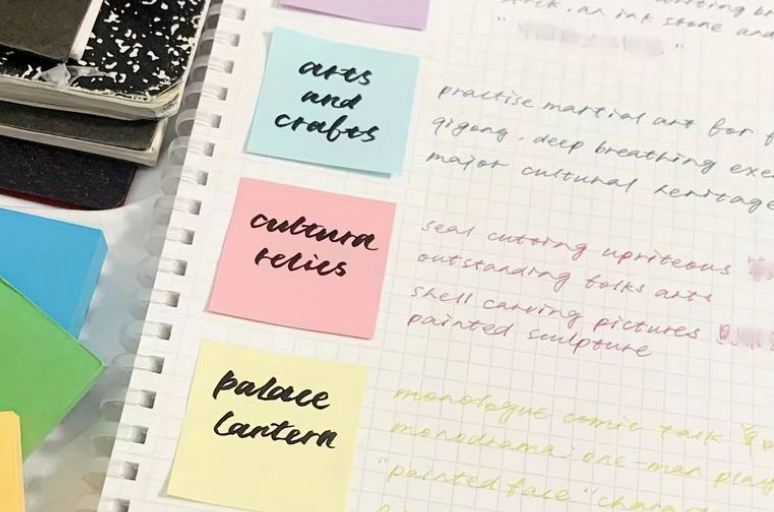 writing br
stick, an ink stone and
arts
and
crafts
practise martial art for f
qigong, deep breathing exe
major cultural heritage
cultural
relics
seal cutting upriteous
outstanding folks arts
shell carving pictures
painted sculpture
palace
lantern
monologue comic talk
monodrama: one-man play
"painted face" charac